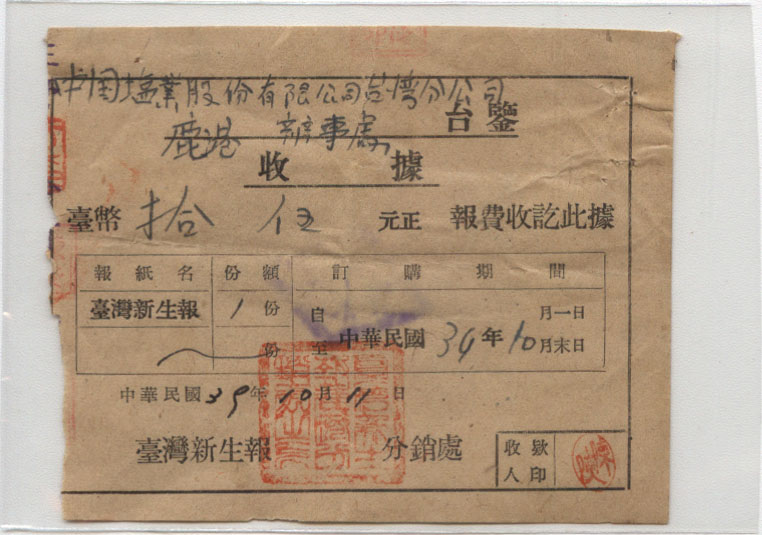 中国塩業股份有限公司台湾分公司
台鑒
鹿港 辦事處
收據
臺幣 拾 伍 元正 報費收訖此據
報紙名 份額 訂購期間
臺灣新生報 1份 自 月一日
中華民國39年10
份 至 月末日
中華民國39年10月11日
臺灣新生報 分銷處
收款
人印